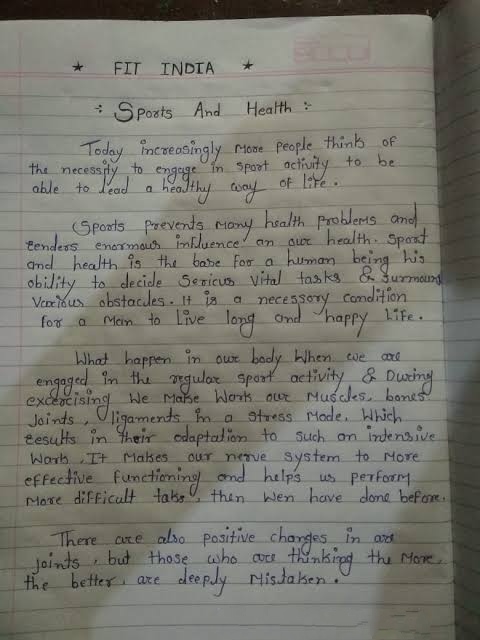 ★ FIT INDIA ★
÷ Sports And Health ÷
Today increasingly more people think of
the necessity to engage in sport activity to be
able to lead a healthy way of life.
(Sports prevents many health problems and
renders enormous influence an our health. Sport
and health is the base for a human being his
obility to decide Serious Vital tasks & Surmound
Various obstacles. It is a necessary condition
for a man to live long and happy life.
What happen in our body when we are
engaged in the regular sport activity & During
excercising We Make Work our Muscles, bones
Joints, ligaments in a stress Mode. Which
results in their adaptation to such an intensive
Work. It Makes our nerve system to More
effective functioning and helps us perform
More difficult take, then Wen have done before.
There are also positive changes in are
joints, but those who are thinking the More,
the better, are deeply Mistaken.